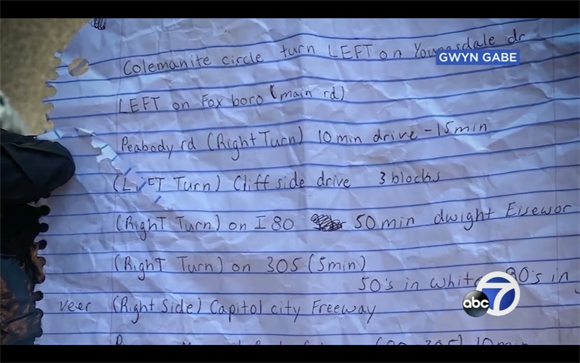 Colemanite circle turn LEFT on Youngsdale dr
GWYN GABE
LEFT on Foxboro (main rd)
Peabody rd (Right Turn) 10 min drive - 15 min
(LEFT Turn) Cliffside drive 3 blocks
(Right Turn) on I 80 50 min dwight Eisewor
(Right Turn) on 305 (5min)
50's in white 80's in
veer (Right Side) Capitol city Freeway
abc 7
10 min